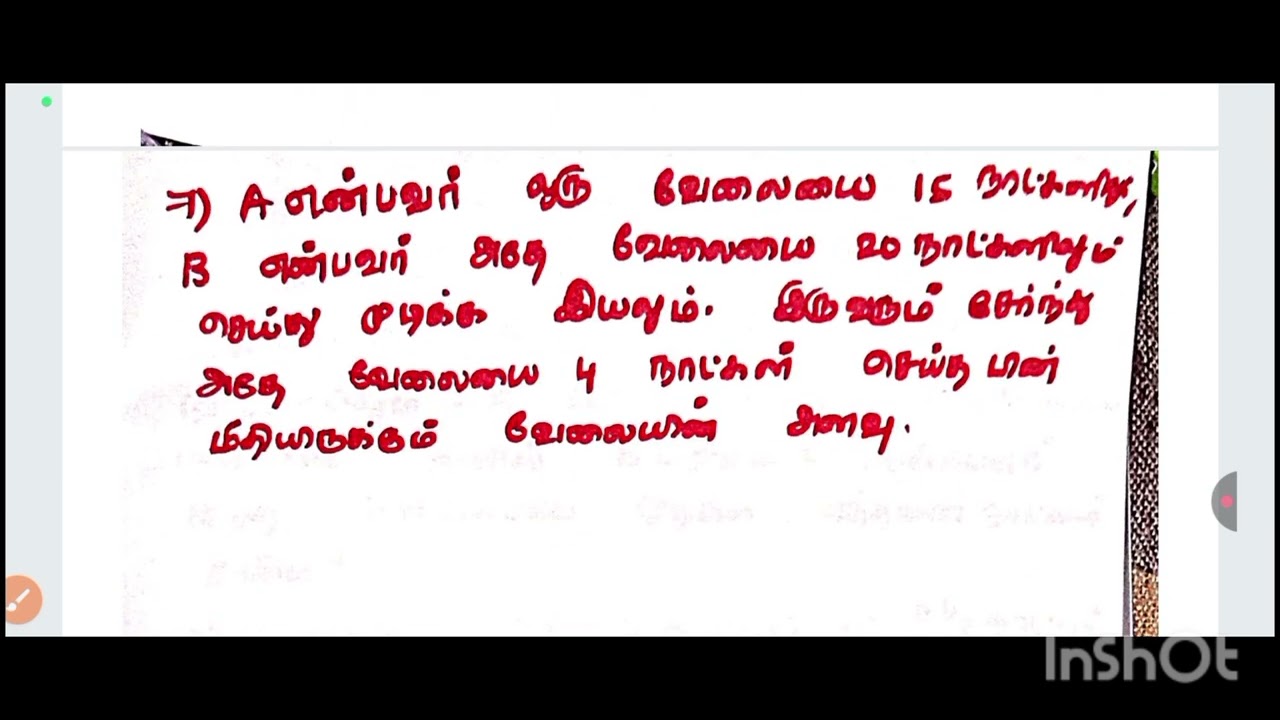 7) A என்பவர் ஒரு வேலையை 15 நாட்களிலு,
B என்பவர் அதே வேலையை 20 நாட்களிலும்
செய்து முடிக்க இயலும். இருவரும் சேர்ந்து
அதே வேலையை 4 நாட்கள் செய்த பின்
மீதியிருக்கும் வேலையின் அளவு.
InShOt